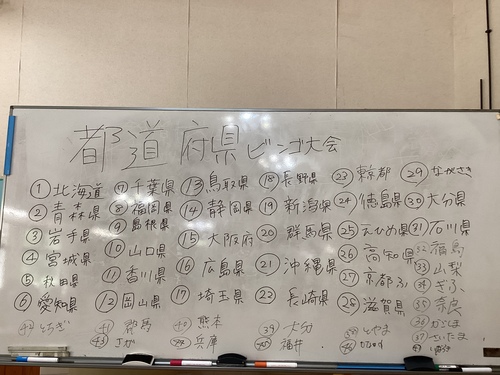 都道府県ビンゴ大会
① 北海道
② 青森県
③ 岩手県
④ 宮城県
⑤ 秋田県
⑥ 愛知県
⑦ 千葉県
⑧ 福岡県
⑨ 島根県
⑩ 山口県
⑪ 香川県
⑫ 岡山県
⑬ 鳥取県
⑭ 静岡県
⑮ 大阪府
⑯ 広島県
⑰ 埼玉県
⑱ 長野県
⑲ 新潟県
⑳ 群馬県
㉑ 沖縄県
㉒ 長崎県
㉓ 東京都
㉔ 徳島県
㉕ えひめ県
㉖ 高知県
㉗ 京都ふ
㉘ 滋賀県
㉙ ながさき
㉚ 大分県
㉛ 石川県
㉜ 福島
㉝ 山梨
㉞ ぎふ
㉟ 奈良
㊱
㊲ さいたま
とやま
㊴ 大分
㊵ 熊本
㊶ 群馬
とちぎ
㊸ さが
㊹ 兵庫
福井